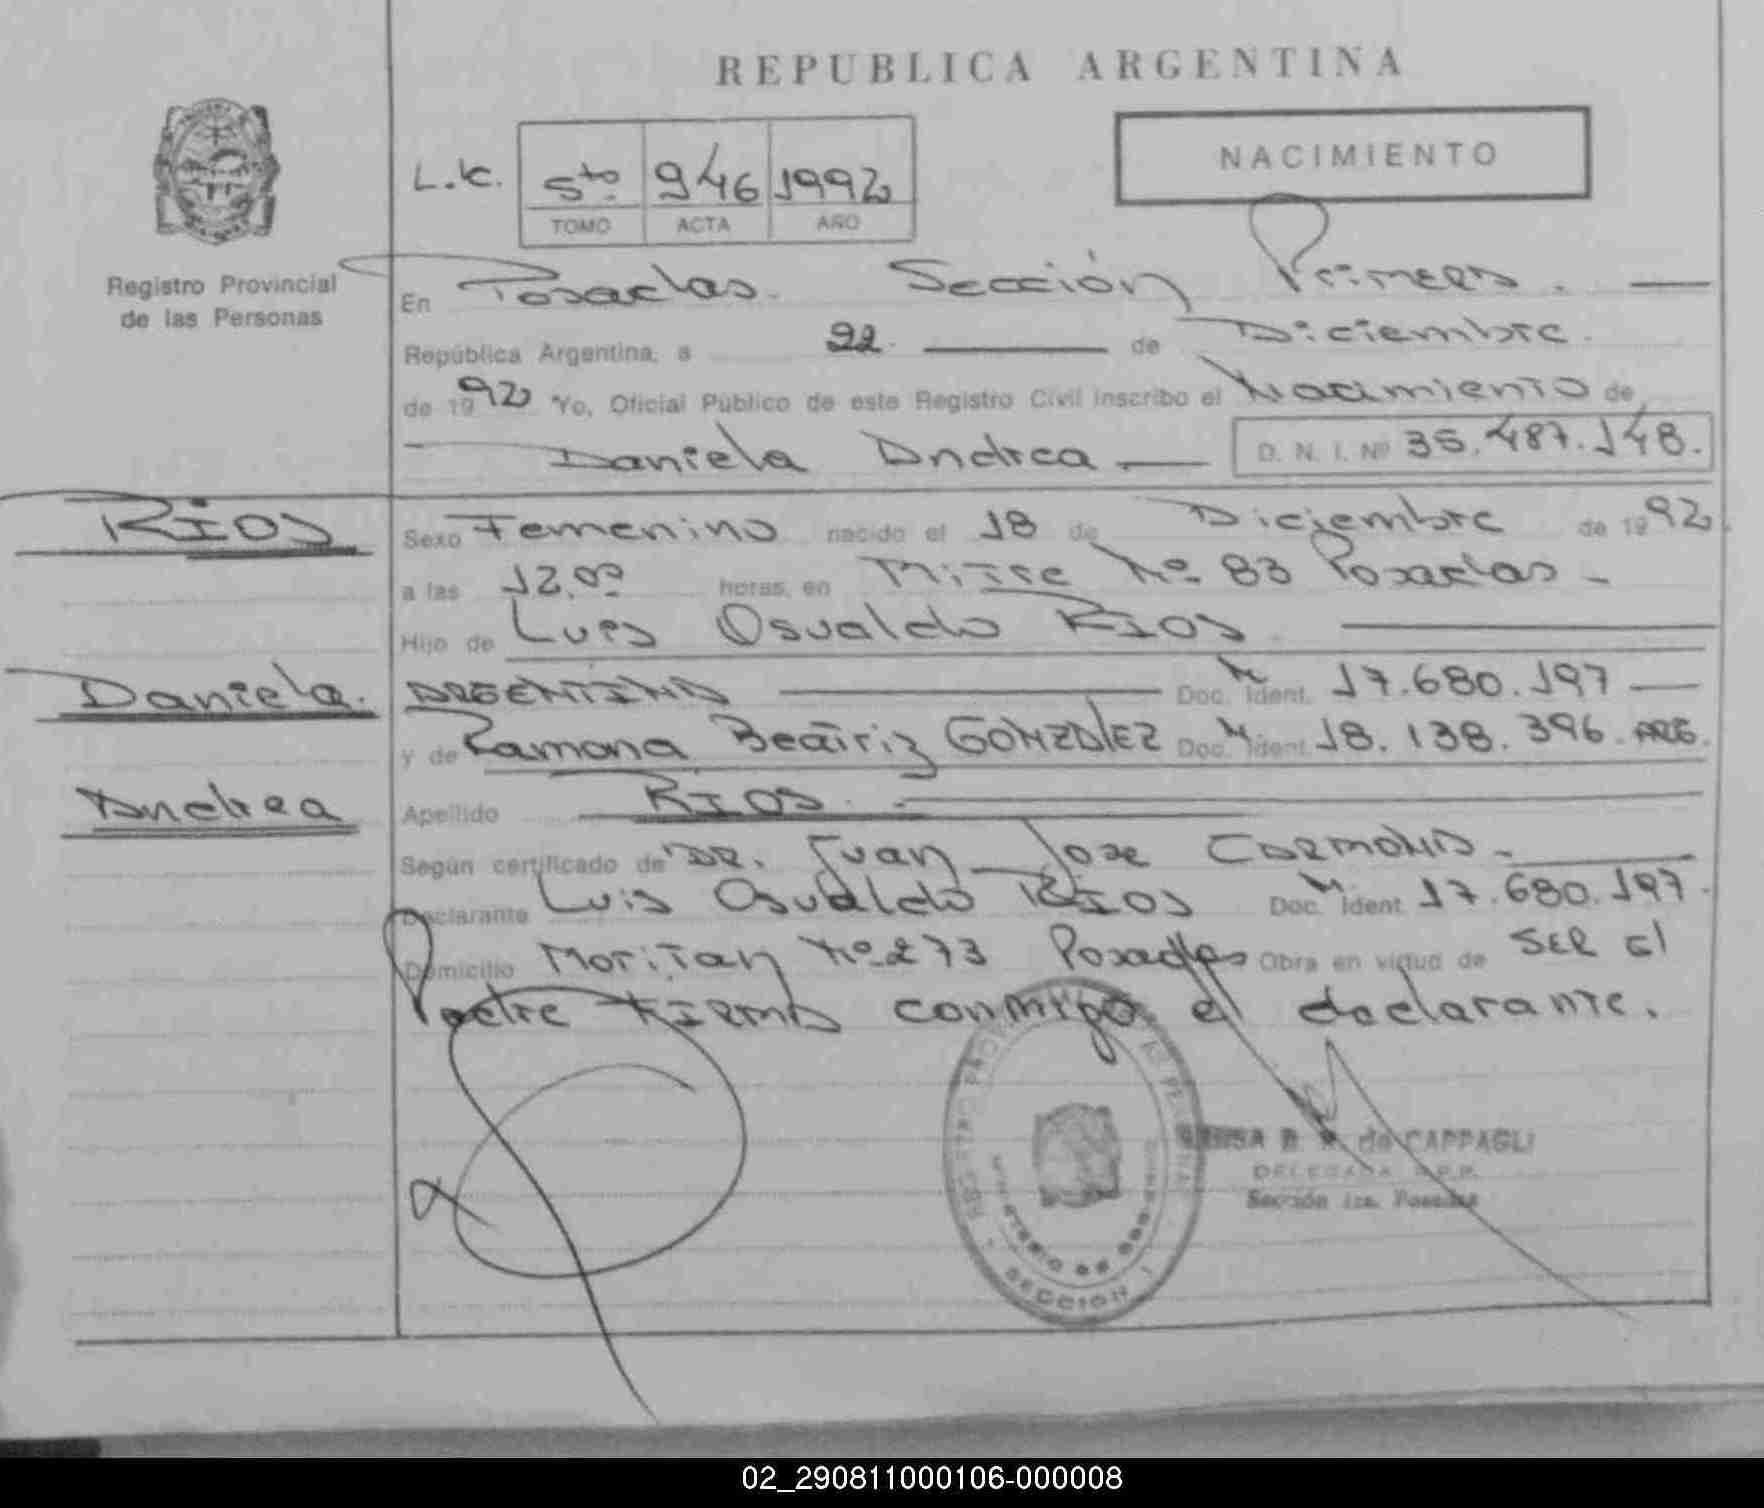 REPUBLICA ARGENTINA
NACIMIENTO
L.C. 5to 946 1992
TOMO ACTA AÑO
Registro Provincial
de las Personas
En Posadas. Sección Primera.
República Argentina, a 22 de Diciembre.
de 1992 Yo, Oficial Público de este Registro Civil inscribo el Nacimiento de
Daniela Andrea D. N. I. Nº 35.487.148.
RIOS
Daniela.
Andrea
Sexo Femenino nacido el 18 de Diciembre de 1992.
a las 12,00 horas, en Mitre Nº 83 Posadas -
Hijo de Luis Osvaldo RIOS
ARGENTINA Doc. M Ident. 17.680.197
y de Ramona Beatriz GONZALEZ Doc. Ident. 18.138.396. ARG.
Apellido RIOS.
Según certificado de DR. Juan Jose CARMONA.
Declarante Luis Osvaldo RIOS Doc. Ident. 17.680.197.
Domicilio Moritan Nº 273 Posadas Obra en virtud de SER el
Padre FIRMA conmigo el declarante.
REGISTRO PROV
MINISTERIO DE GOBIERNO
SECCION 1
B. de CAPPAGLI
DELEGADA R.P.P.
Sección 1ra. Posadas
02_290811000106-000008